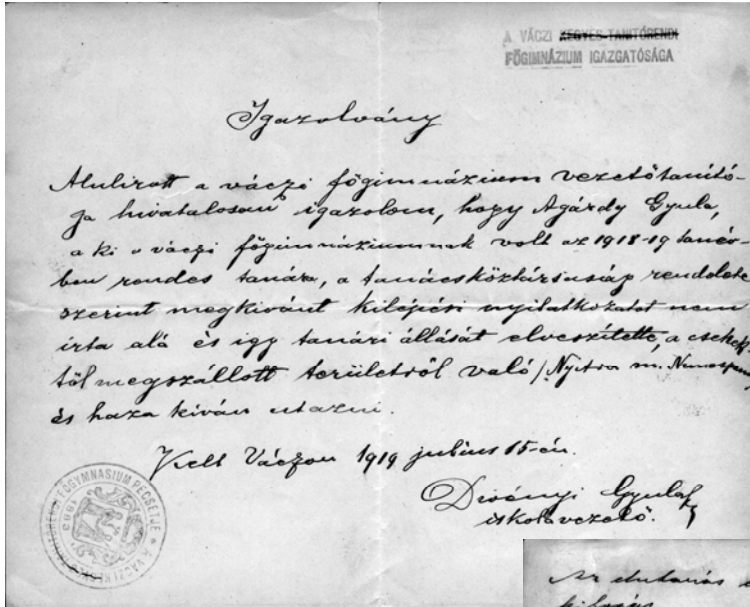 A VÁCZI KEGYES-TANITÓRENDI
FŐGIMNÁZIUM IGAZGATÓSÁGA
Igazolvány
Alulirott a váczi főgimnázium vezetőtanító-
ja hivatalosan igazolom, hogy Agárdy Gyula,
a ki a váczi főgimnáziumnak volt az 1918-19 tanév-
ben rendes tanára, a tanácsköztársaság rendelete
szerint megkivánt kilépési nyilatkozatot nem
irta alá és igy tanári állását elveszítette, a csehek
től megszállott területről való /Nyitra m.
és haza kiván utazni.
Kelt Váczon 1919 július 15-én.
Divényi Gyula
iskolavezető.
FŐGYMNASIUM PECSÉTJE
Az